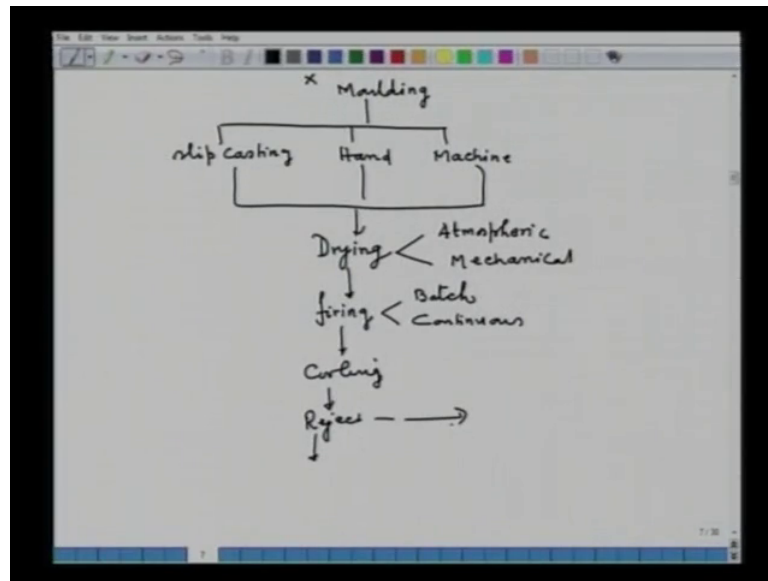 File Edit View Insert Actions Tools Help
x Moulding
slip casting Hand Machine
Drying Atmospheric
Mechanical
firing Batch
Continuous
Cooling
Reject
7/30
7